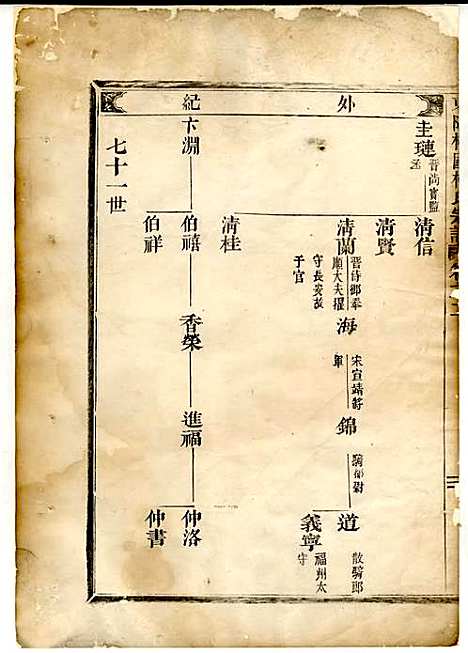 外紀
圭璉
晋尚寳監
丞
清信
清賢
清蘭
晋待郎奉
順大夫擢
守長安故
于官
海
宋宣靖將
軍
錦
騎都尉
道
散騎郎
義寧
福州太
守
清桂
卞淵
伯禧
香榮
進福
仲洛
伯祥
仲書
七十一世